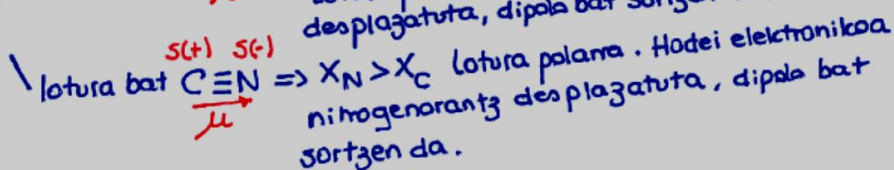 desplazatuta, dipolo bat
S(+) S(-)
\ lotura bat C≡N => X_N > X_C lotura polarra. Hodei elektronikoa
μ
nitrogenorantz desplazatuta, dipolo bat
sortzen da.